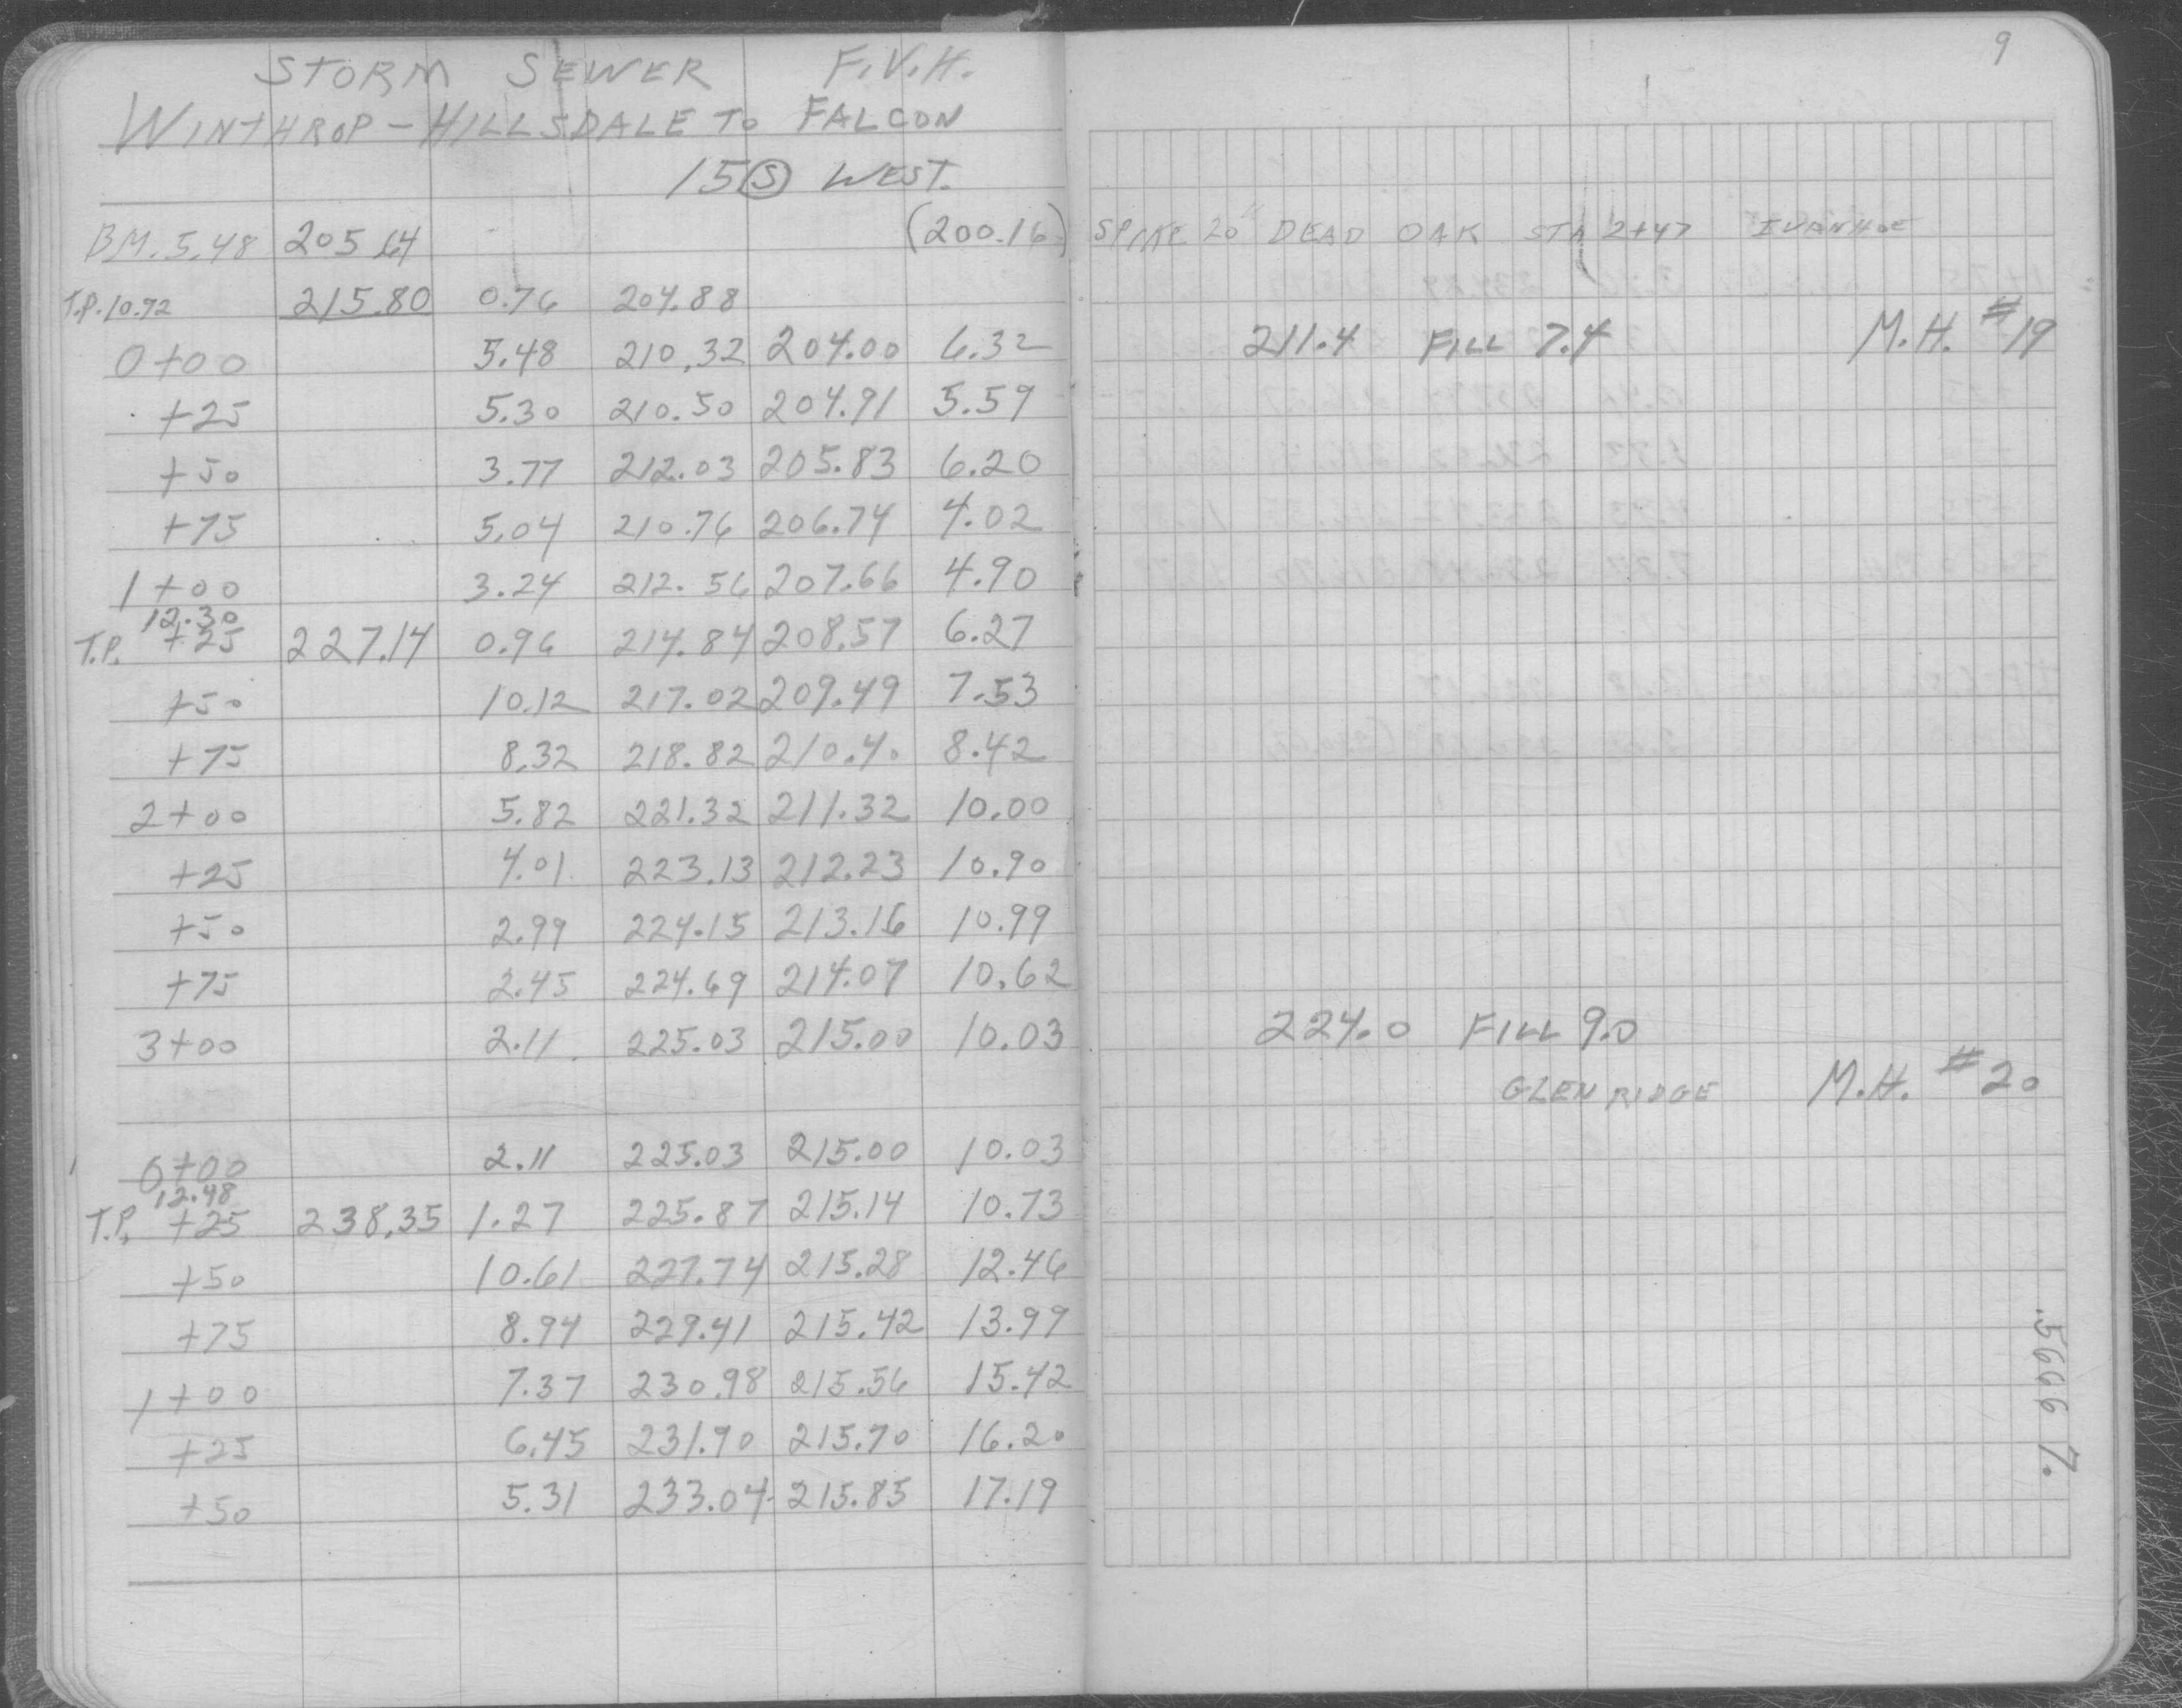 STORM SEWER F.V.H.
WINTHROP - HILLSDALE TO FALCON
15 Ⓢ WEST.
BM. 5.48 205.64 (200.16) SPIKE 20" DEAD OAK STA 2+47 IVANHOE
T.P. 10.92 215.80 0.76 204.88
0+00 5.48 210.32 204.00 6.32 211.4 FILL 7.4 M.H. #19
+25 5.30 210.50 204.91 5.59
+50 3.77 212.03 205.83 6.20
+75 5.04 210.76 206.74 4.02
1+00 3.24 212.56 207.66 4.90
12.30
T.P. +25 227.14 0.96 214.84 208.57 6.27
+50 10.12 217.02 209.49 7.53
+75 8.32 218.82 210.40 8.42
2+00 5.82 221.32 211.32 10.00
+25 4.01 223.13 212.23 10.90
+50 2.99 224.15 213.16 10.99
+75 2.45 224.69 214.07 10.62
3+00 2.11 225.03 215.00 10.03 224.0 FILL 9.0
GLEN RIDGE M.H. #20
0+00 2.11 225.03 215.00 10.03
12.48
T.P. +25 238.35 1.27 225.87 215.14 10.73
+50 10.61 227.74 215.28 12.46
+75 8.94 229.41 215.42 13.99
1+00 7.37 230.98 215.56 15.42
+25 6.45 231.90 215.70 16.20
+50 5.31 233.04 215.85 17.19
9
.5666 7.